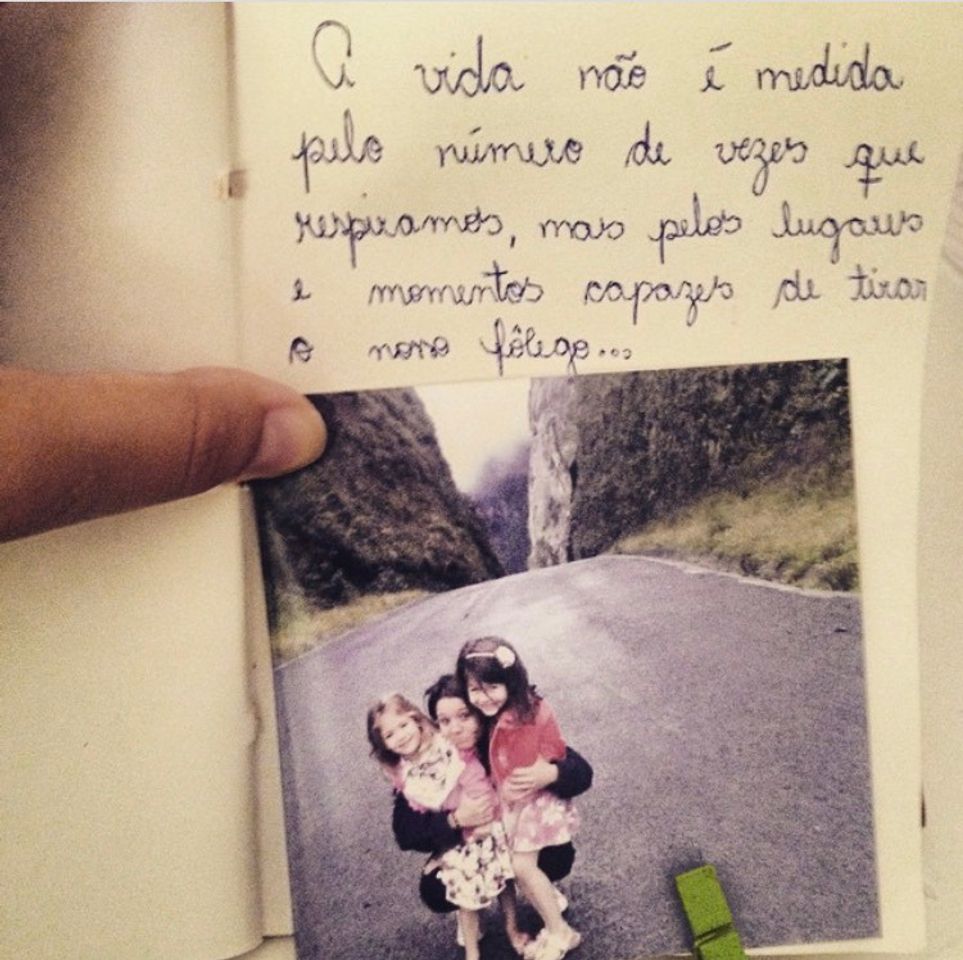 A vida não é medida
pelo número de vezes que
respiramos, mas pelos lugares
e momentos capazes de tirar
o nosso fôlego...